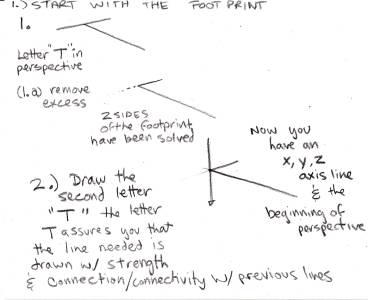 1.) START WITH THE FOOT PRINT
1.
Letter "T" in
perspective
(1.a) remove
excess
2 SIDES
of the footprint
have been solved
Now you
have an
x, y, z
axis line
& the
beginning of
perspective
2.) Draw the
second letter
"T" the letter
T assures you that
the line needed is
drawn w/ strength
& connection/connectivity w/ previous lines